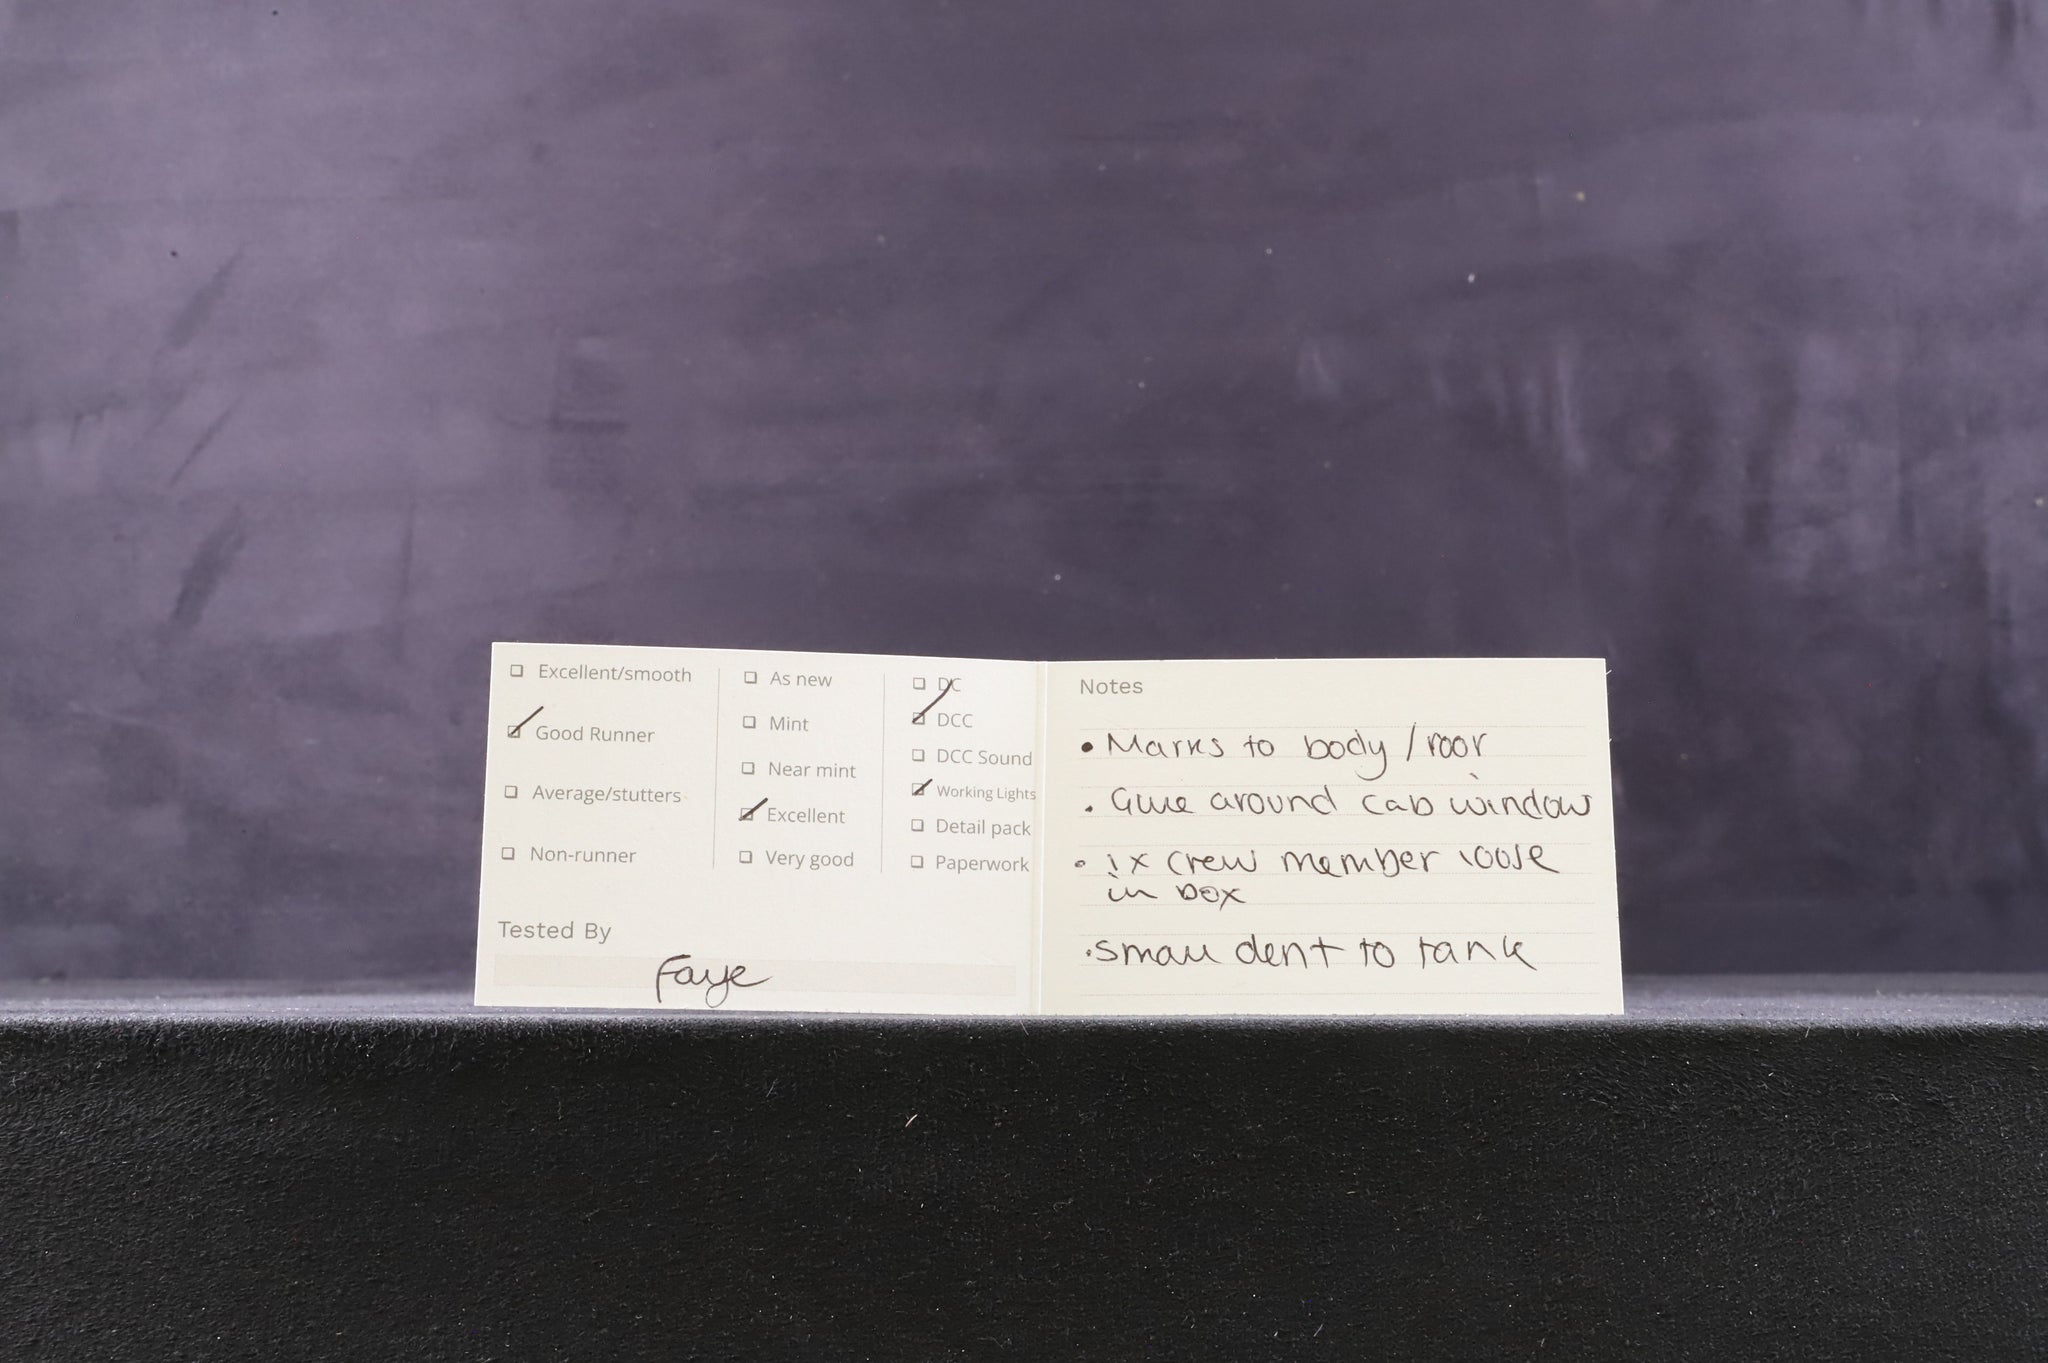 Excellent/smooth
Good Runner
Average/stutters
Non-runner
As new
Mint
Near mint
Excellent
Very good
DC
DCC
DCC Sound
Working Lights
Detail pack
Paperwork
Tested By
Faye
Notes
• Marks to body / roof
• Glue around cab window
• 1x crew member loose
in box
• small dent to tank